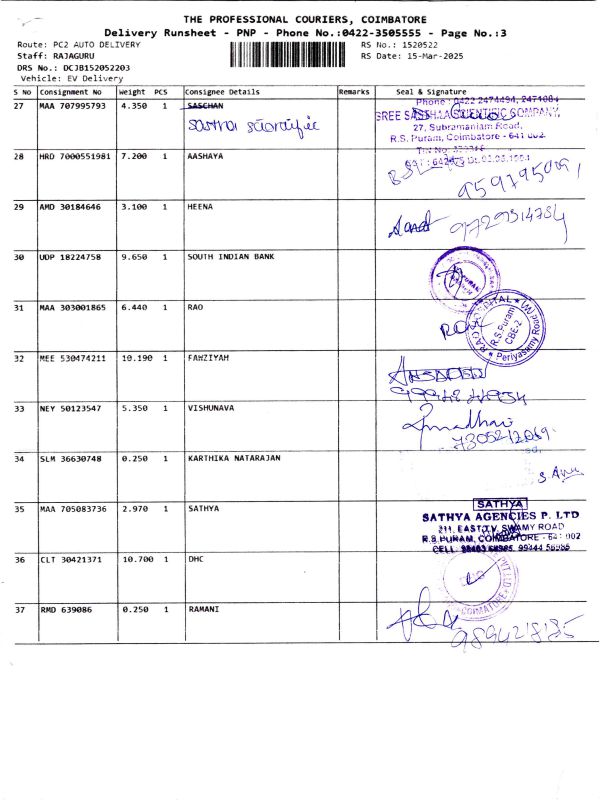 THE PROFESSIONAL COURIERS, COIMBATORE
Delivery Runsheet - PNP - Phone No.:0422-3505555 - Page No.:3
Route: PC2 AUTO DELIVERY
RS No.: 1520522
Staff: RAJAGURU
RS Date: 15-Mar-2025
DRS No.: DCJB152052203
Vehicle: EV Delivery
S No Consignment No Weight PCS Consignee Details Remarks Seal & Signature
27 MAA 707995793 4.350 1 SASCHAN
Sastha Scientific
Phone: 0422 2474494, 2471084
SREE SASTHA SCIENTIFIC COMPANY,
27, Subramaniam Road,
R.S. Puram, Coimbatore - 641 002
28 HRD 7000551981 7.200 1 AASHAYA
29 AMD 30184646 3.100 1 HEENA
30 UDP 18224758 9.650 1 SOUTH INDIAN BANK
31 MAA 303001865 6.440 1 RAO
RAO HOSPITAL
R.S.Puram
CBE-2
Periyasamy Road
32 MEE 530474211 10.190 1 FAHZIYAH
33 NEY 50123547 5.350 1 VISHUNAVA
34 SLM 36630748 0.250 1 KARTHIKA NATARAJAN
35 MAA 705083736 2.970 1 SATHYA
SATHYA
SATHYA AGENCIES P. LTD
211, EAST T.V. SWAMY ROAD
R.S PURAM, COIMBATORE - 641 002
36 CLT 30421371 10.700 1 DHC
37 RMD 639086 0.250 1 RAMANI